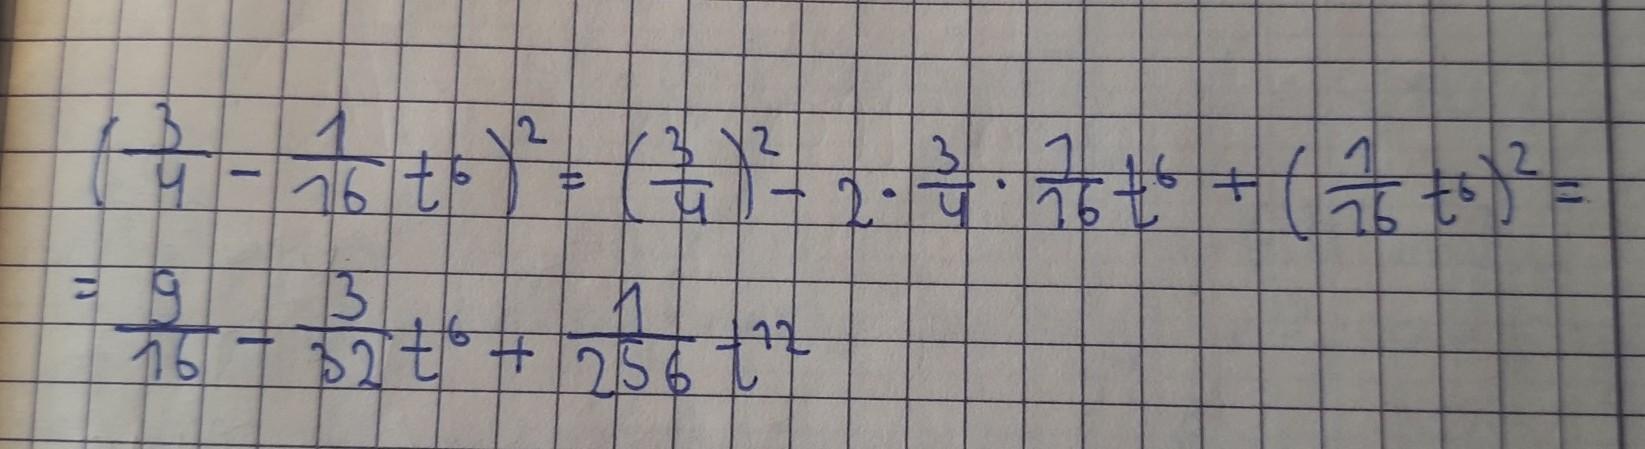 (3/4 - 1/16 t⁶)² = (3/4)² - 2 · 3/4 · 1/16 t⁶ + (1/16 t⁶)² =
= 9/16 - 3/32 t⁶ + 1/256 t¹²